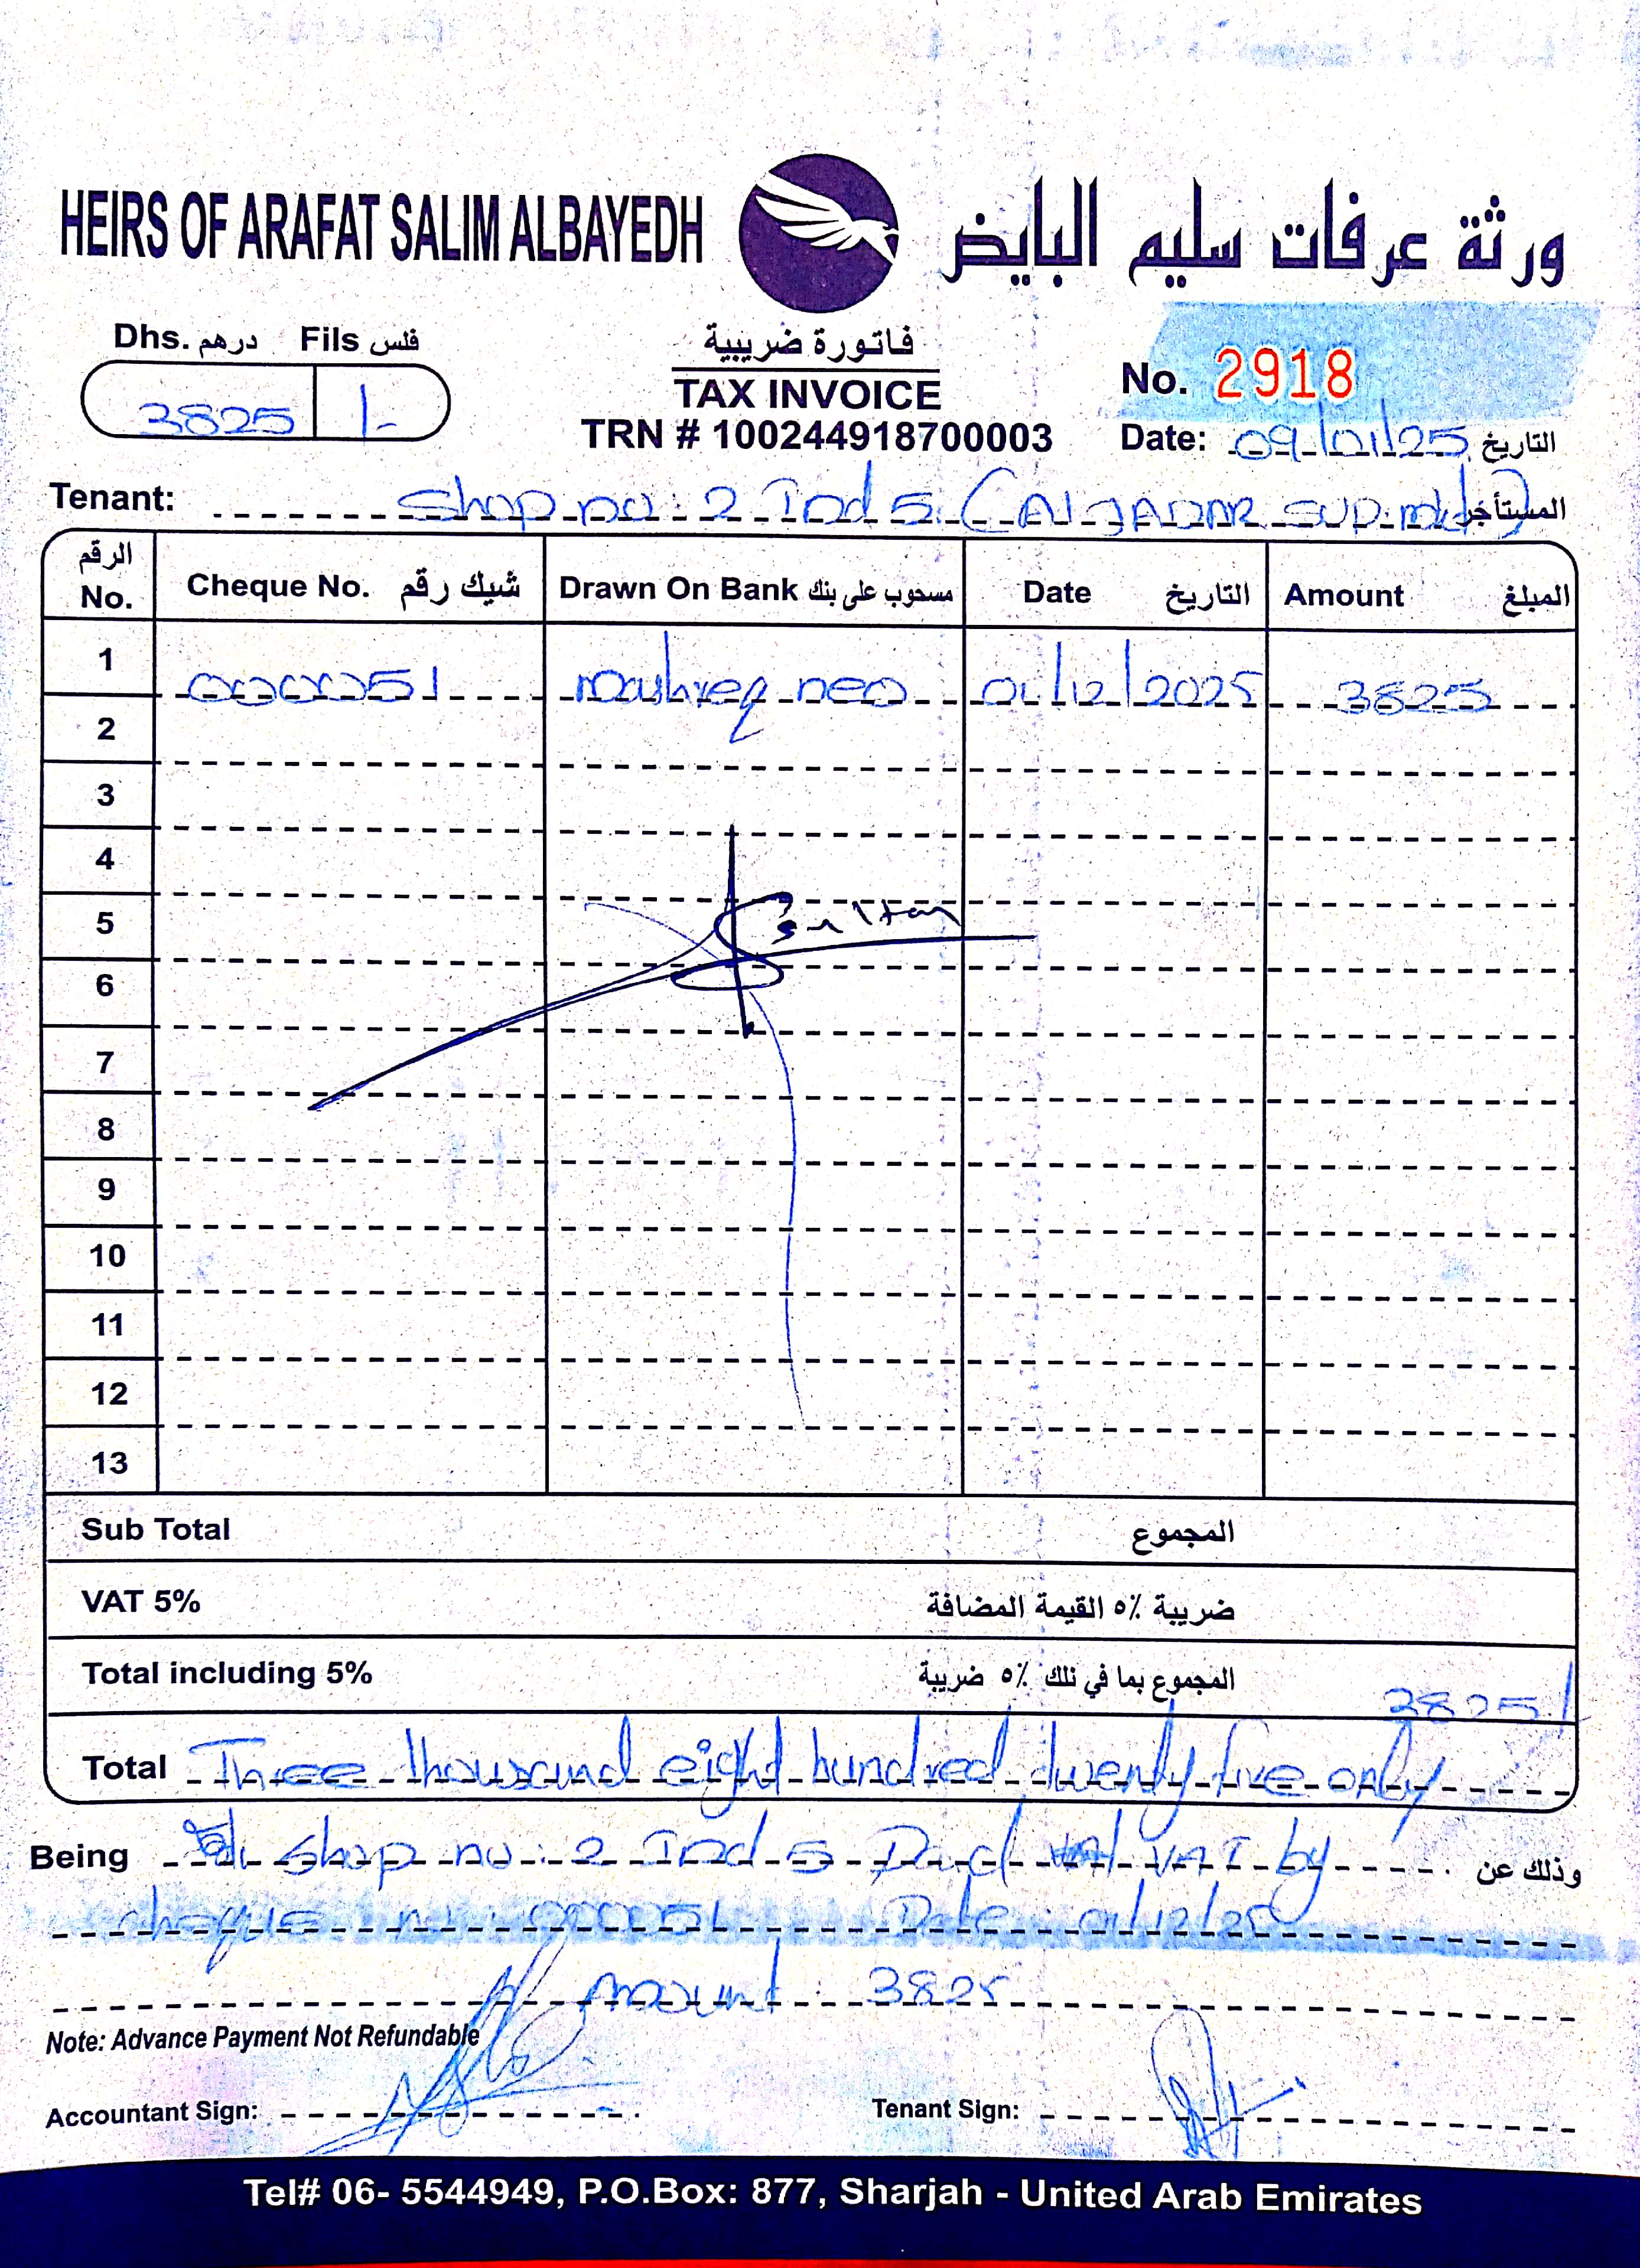 HEIRS OF ARAFAT SALIM ALBAYEDH ورثة عرفات سليم البايض
Dhs. درهم Fils فلس
3825 /-
فاتورة ضريبية
TAX INVOICE
TRN # 100244918700003
No. 2918
Date: 09/01/25 التاريخ
Tenant: Shop no: 2 Ind 5 (Al JADAR sup. mkt) المستأجر
الرقم No. Cheque No. شيك رقم Drawn On Bank مسحوب على بنك Date التاريخ Amount المبلغ
1 000051 Mashreq neo 01/12/2025 3825
2
3
4
5 Sultan
6
7
8
9
10
11
12
13
Sub Total المجموع
VAT 5% ضريبة ٥٪ القيمة المضافة
Total including 5% المجموع بما في ذلك ٥٪ ضريبة 3825/
Total Three thousand eight hundred twenty five only
Being Shop no: 2 Ind 5 VAT by وذلك عن
cheque no: 000051 Date: 01/12/25
Amount: 3825
Note: Advance Payment Not Refundable
Accountant Sign: Tenant Sign:
Tel# 06- 5544949, P.O.Box: 877, Sharjah - United Arab Emirates